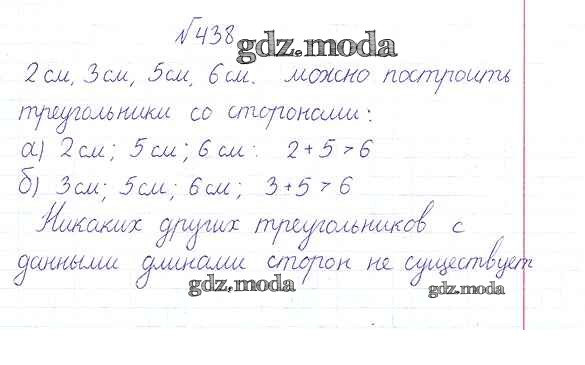 №438
gdz.moda
2см, 3см, 5см, 6см. можно построить
треугольники со сторонами:
а) 2см; 5см; 6см: 2+5>6
б) 3см; 5см; 6см; 3+5>6
Никаких других треугольников с
данными длинами сторон не существует
gdz.moda
gdz.moda